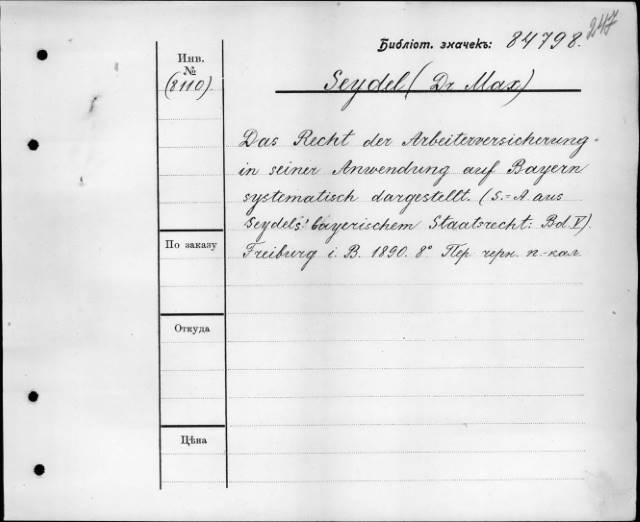 247
Библіот. значекъ: 84798.
Инв.
№
(8110).
Seydel (Dr Max)
Das Recht der Arbeiterversicherung-
in seiner Anwendung auf Bayern
systematisch dargestellt. (S.-A aus
Seydel's bayerischem Staatsrecht: Bd. V).
Freiburg i. B. 1890. 8° Пер черн. п-кал
По заказу
Откуда
Цѣна